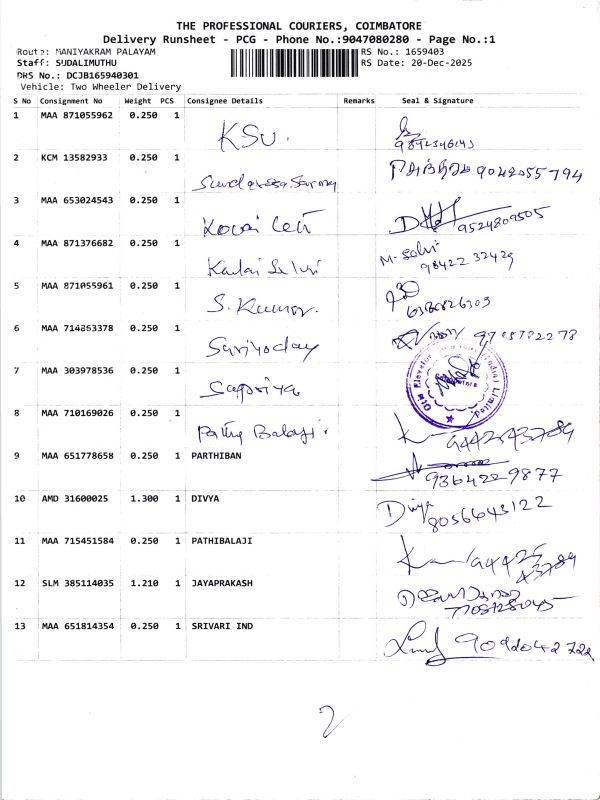 THE PROFESSIONAL COURIERS, COIMBATORE
Delivery Runsheet - PCG - Phone No.:9047080280 - Page No.:1
Route: MANIYAKRAM PALAYAM
RS No.: 1659403
Staff: SUDALIMUTHU
RS Date: 20-Dec-2025
DRS No.: DCJB165940301
Vehicle: Two Wheeler Delivery
S No Consignment No Weight PCS Consignee Details Remarks Seal & Signature
1 MAA 871055962 0.250 1 KSU.
2 KCM 13582933 0.250 1 9042055794
3 MAA 653024543 0.250 1 Kovai 9524809505
4 MAA 871376682 0.250 1 M. Selvi
98422 32429
5 MAA 871055961 0.250 1 S. Kumar.
6 MAA 714853378 0.250 1
7 MAA 303978536 0.250 1 Supriya Elevator Limited
8 MAA 710169026 0.250 1 Balaji
9 MAA 651778658 0.250 1 PARTHIBAN 9364229877
10 AMD 31600025 1.300 1 DIVYA Divya
8056643122
11 MAA 715451584 0.250 1 PATHIBALAJI
12 SLM 385114035 1.210 1 JAYAPRAKASH
13 MAA 651814354 0.250 1 SRIVARI IND
2